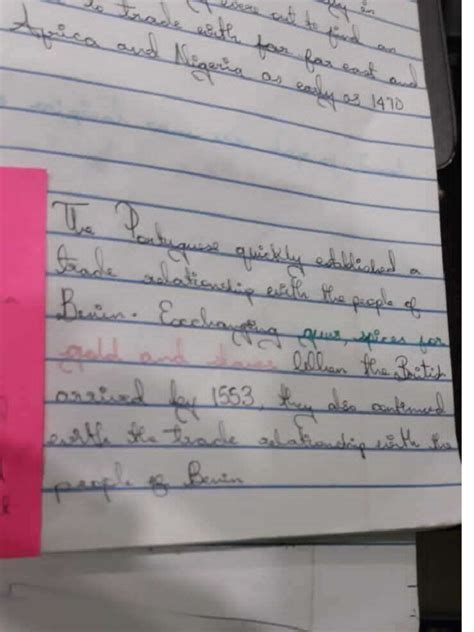 were out to find an
to trade with far far east and
Africa and Nigeria as early as 1470
The Portuguese quickly established a
trade relationship with the people of
Benin. Exchanging guns, spices for
gold and slaves When the British
arrived by 1553, they also continued
with the trade relationship with the
people of Benin